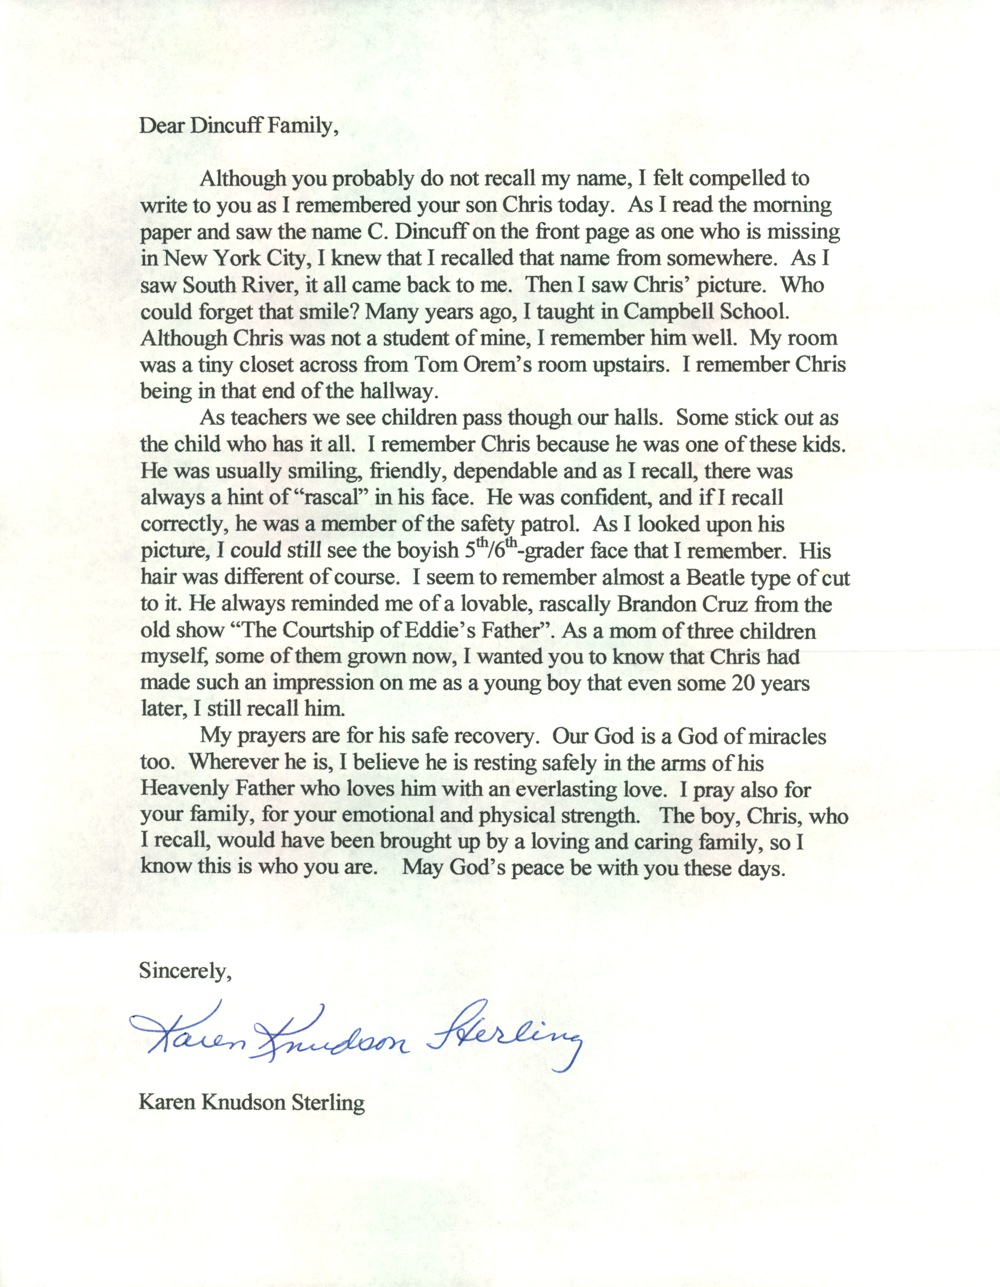 Dear Dincuff Family,
Although you probably do not recall my name, I felt compelled to
write to you as I remembered your son Chris today.  As I read the morning
paper and saw the name C. Dincuff on the front page as one who is missing
in New York City, I knew that I recalled that name from somewhere.  As I
saw South River, it all came back to me.  Then I saw Chris’ picture.  Who
could forget that smile? Many years ago, I taught in Campbell School.
Although Chris was not a student of mine, I remember him well.  My room
was a tiny closet across from Tom Orem’s room upstairs.  I remember Chris
being in that end of the hallway.
As teachers we see children pass though our halls.  Some stick out as
the child who has it all.  I remember Chris because he was one of these kids.
He was usually smiling, friendly, dependable and as I recall, there was
always a hint of “rascal” in his face.  He was confident, and if I recall
correctly, he was a member of the safety patrol.  As I looked upon his
picture, I could still see the boyish 5th/6th-grader face that I remember.  His
hair was different of course.  I seem to remember almost a Beatle type of cut
to it. He always reminded me of a lovable, rascally Brandon Cruz from the
old show “The Courtship of Eddie’s Father”. As a mom of three children
myself, some of them grown now, I wanted you to know that Chris had
made such an impression on me as a young boy that even some 20 years
later, I still recall him.
My prayers are for his safe recovery.  Our God is a God of miracles
too.  Wherever he is, I believe he is resting safely in the arms of his
Heavenly Father who loves him with an everlasting love.  I pray also for
your family, for your emotional and physical strength.   The boy, Chris, who
I recall, would have been brought up by a loving and caring family, so I
know this is who you are.    May God’s peace be with you these days.
Sincerely,
Karen Knudson Sterling
Karen Knudson Sterling